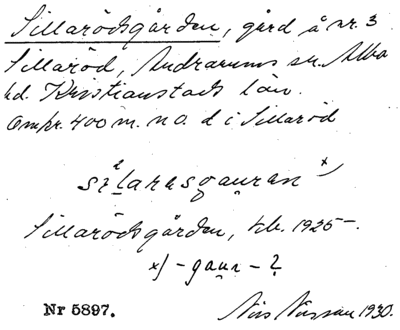 Sillarödsgården, gård å nr. 3
Sillaröd, Andrarums sn. Albo
hd. Kristianstads län.
Omkr. 400 m. n.o. d i Sillaröd
sɪlarasgaurən x)
Sillarödsgården, kb. 1925–.
x) – gaur – ?
Nr 5897.
Nils Nilsson 1930.